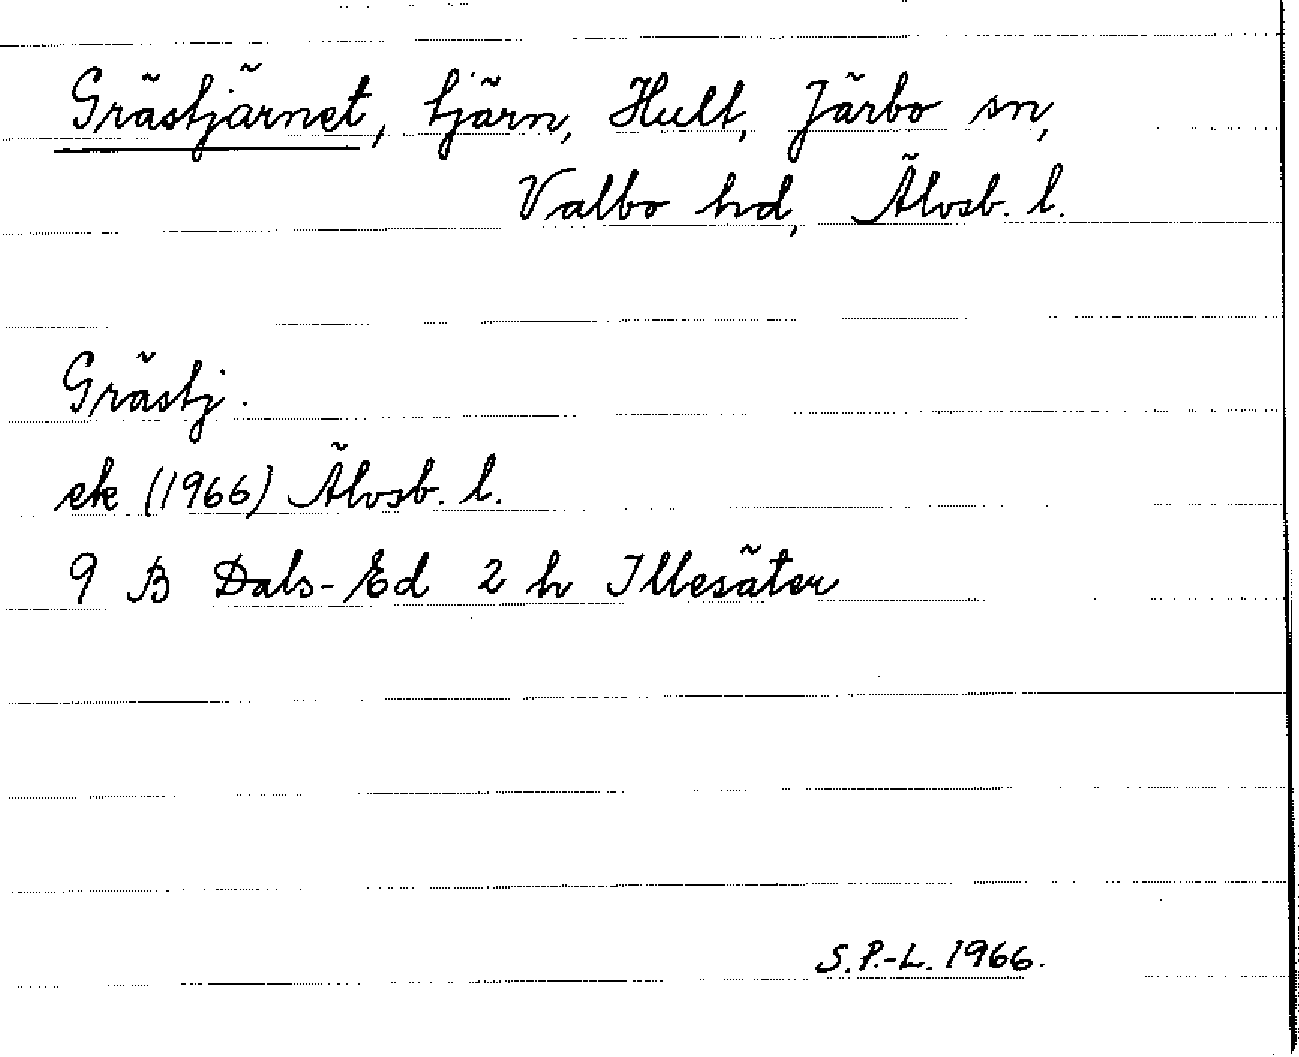 Grästjärnet, tjärn, Hult, Järbo sn,
Valbo hd, Älvsb. l.
Grästj.
ek (1966) Älvsb. l.
9 B Dals-Ed 2 h Illesäter
S.P.-L. 1966.